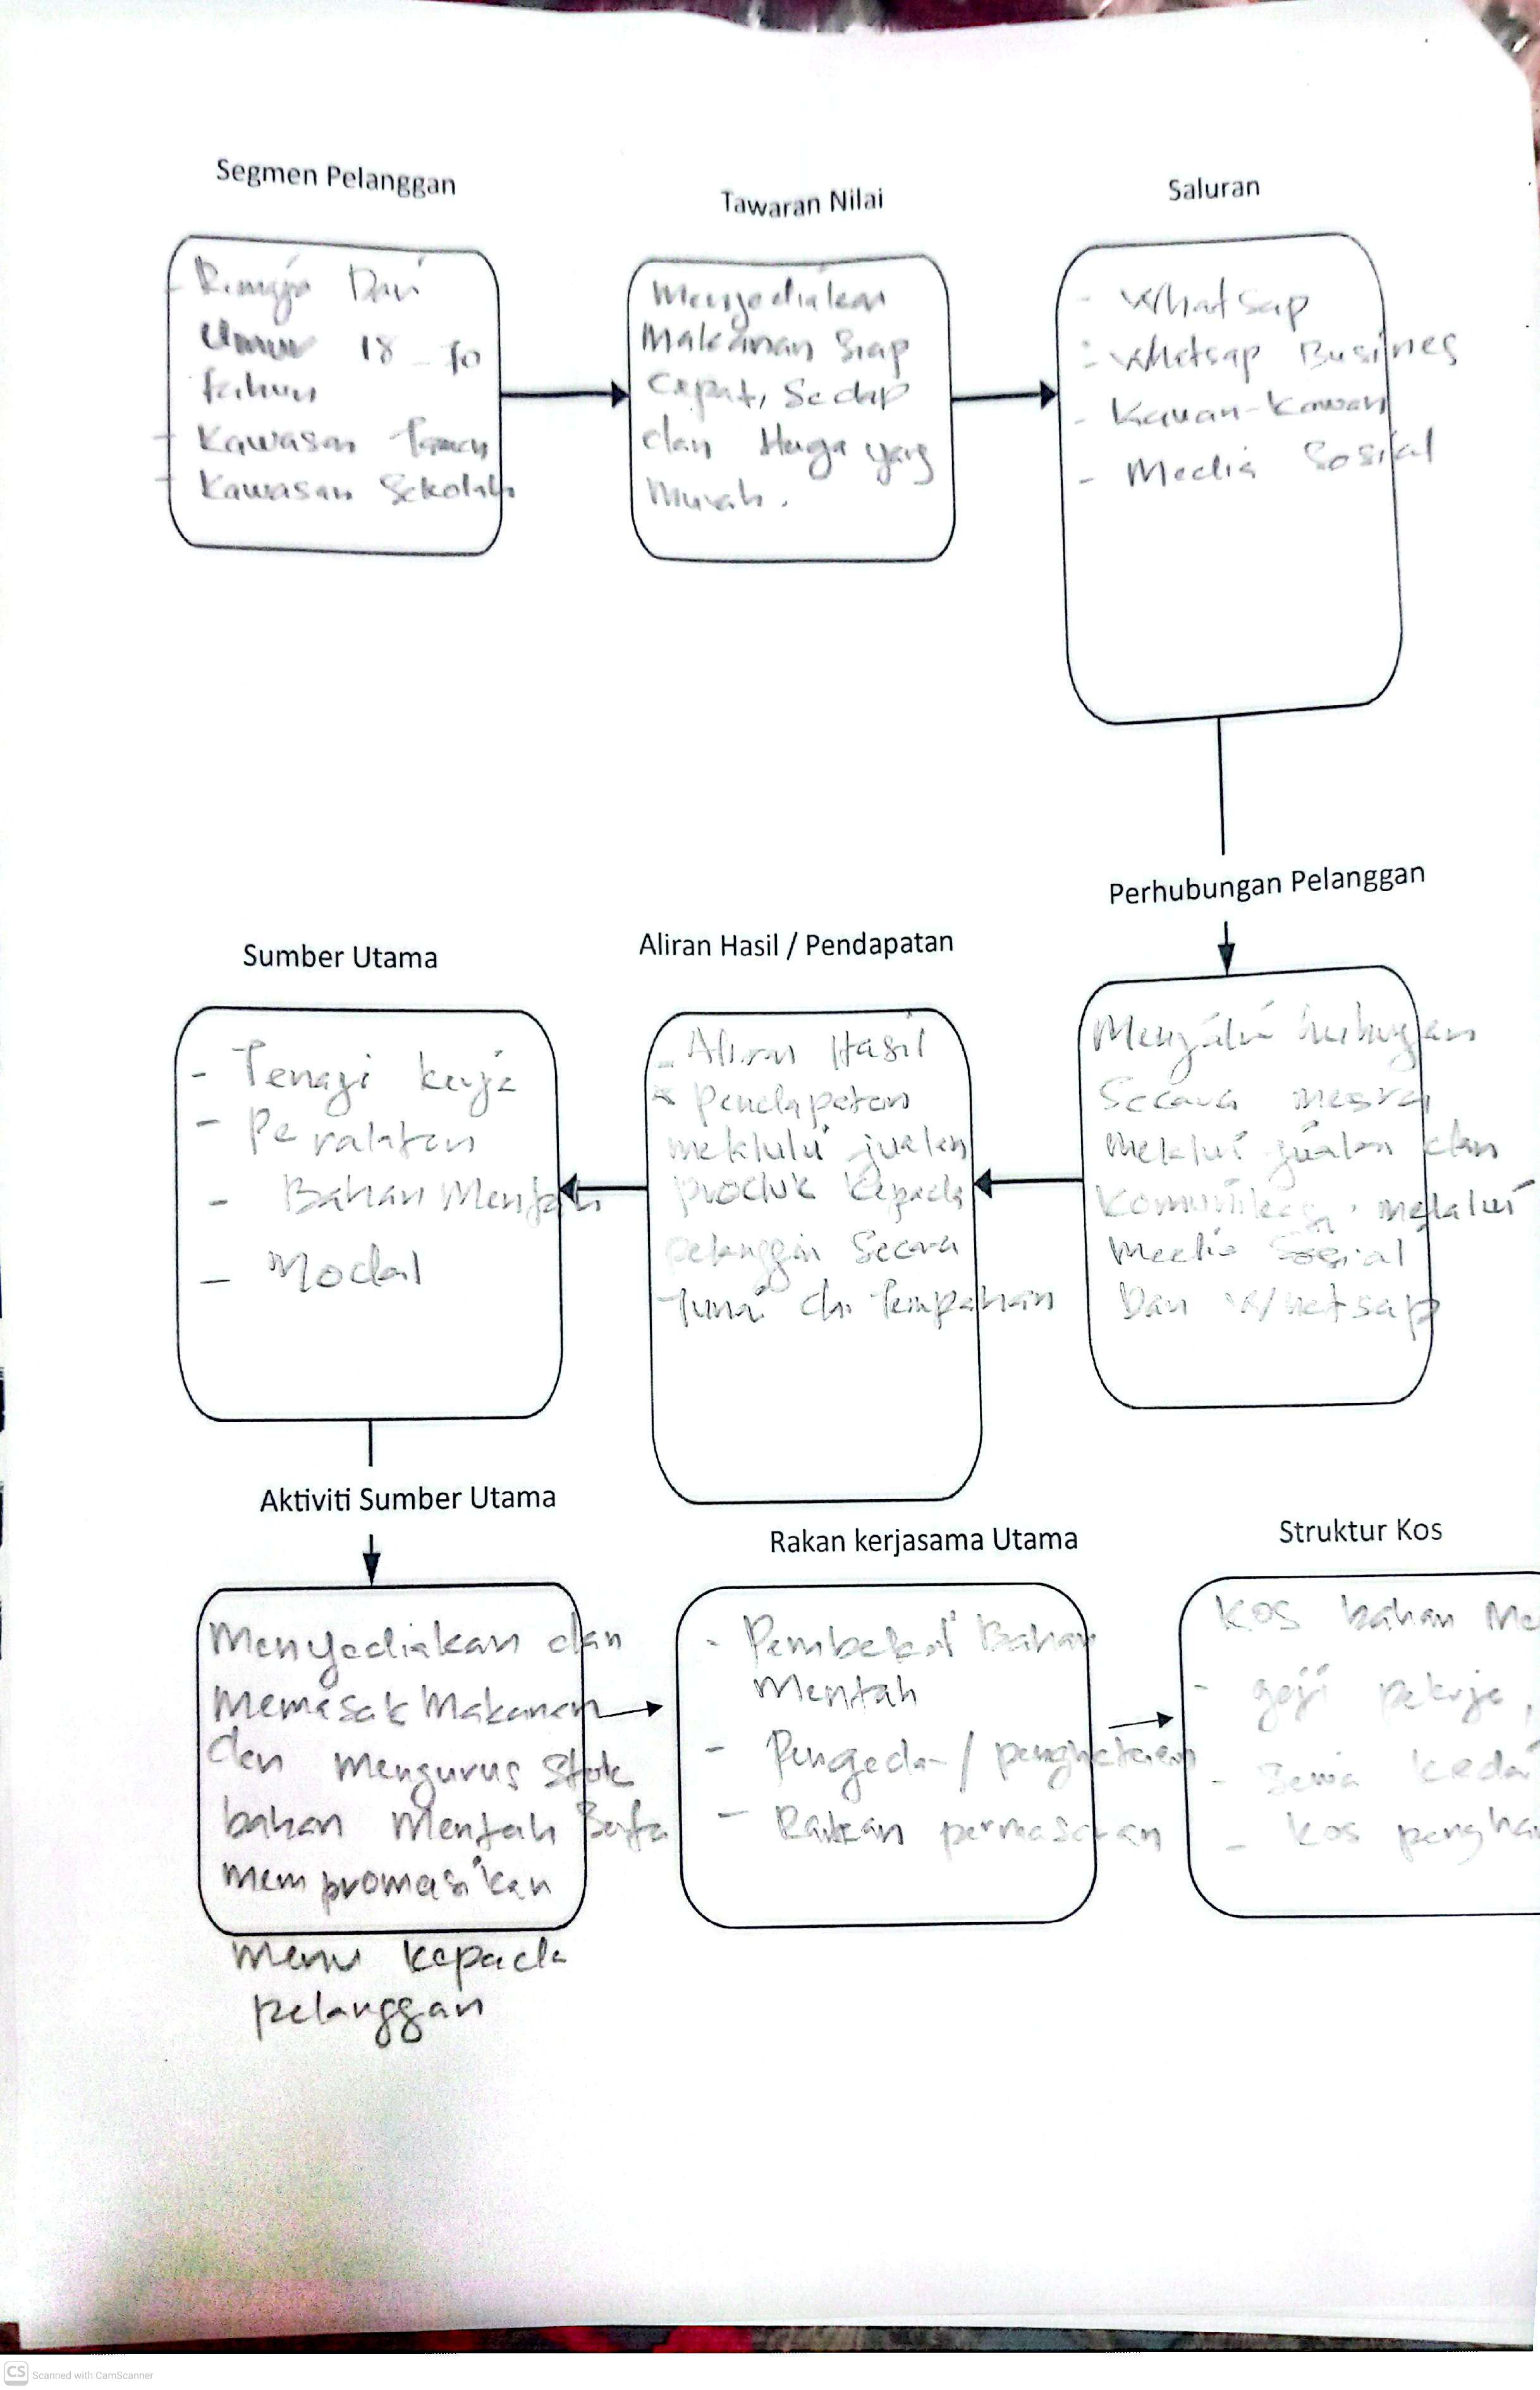 Segmen Pelanggan
- Remaja Dari
Umur 18 - 
tahun
- Kawasan Taman
- Kawasan Sekolah
Tawaran Nilai
Menyediakan
Makanan Siap
Cepat, Sedap
dan Harga yang
Murah.
Saluran
- Whatsap
- Whatsap Busines
- Kawan-Kawan
- Media Sosial
Perhubungan Pelanggan
Menjalin hubungan
Secara mesra
melalui jualan dan
Komunikasi melalui
Media Sosial
Dan Whatsap
Aliran Hasil / Pendapatan
- Aliran Hasil
Pendapatan
melalui jualan
produk kepada
pelanggan Secara
Tunai dan Tempahan
Sumber Utama
- Tenaga kerja
- Peralatan
- Bahan Mentah
- Modal
Aktiviti Sumber Utama
Menyediakan dan
Memasak Makanan
dan mengurus Stok
bahan Mentah Serta
mempromasikan
menu kepada
pelanggan
Rakan kerjasama Utama
- Pembekal Bahan
Mentah
- Pengedar / penghantaran
- Rakan permasaran
Struktur Kos
Kos bahan Me
- gaji pekerja,
- Sewa kedai
- Kos pengha
CS Scanned with CamScanner